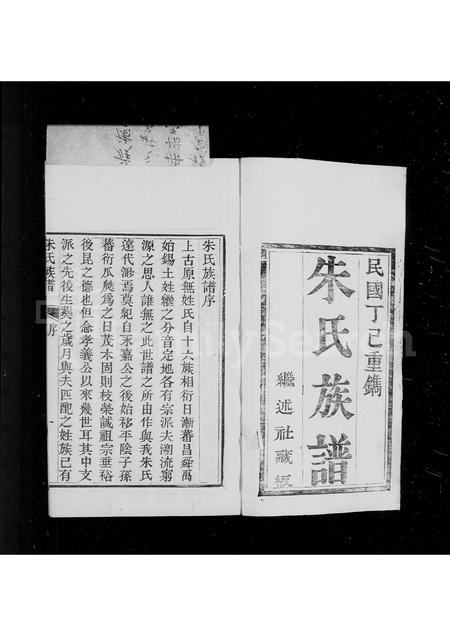 民國丁巳重鐫
朱氏族譜
繼述社藏板
朱氏族譜序
上古原無姓氏自十六族相衍日漸蕃昌舜禹
始錫土姓繼之分音定地各有宗派夫溯流窮
源之思人誰無之此世譜之所由作與我朱氏
遠代渺焉莫紀自永嘉公之後始移平陰子孫
蕃衍瓜瓞為之日茂本固則枝榮誠祖宗垂裕
後昆之德也但念孝義公以來幾世耳其中支
派之先後生葬之歲月與夫匹配之姓族已有
朱氏族譜
序